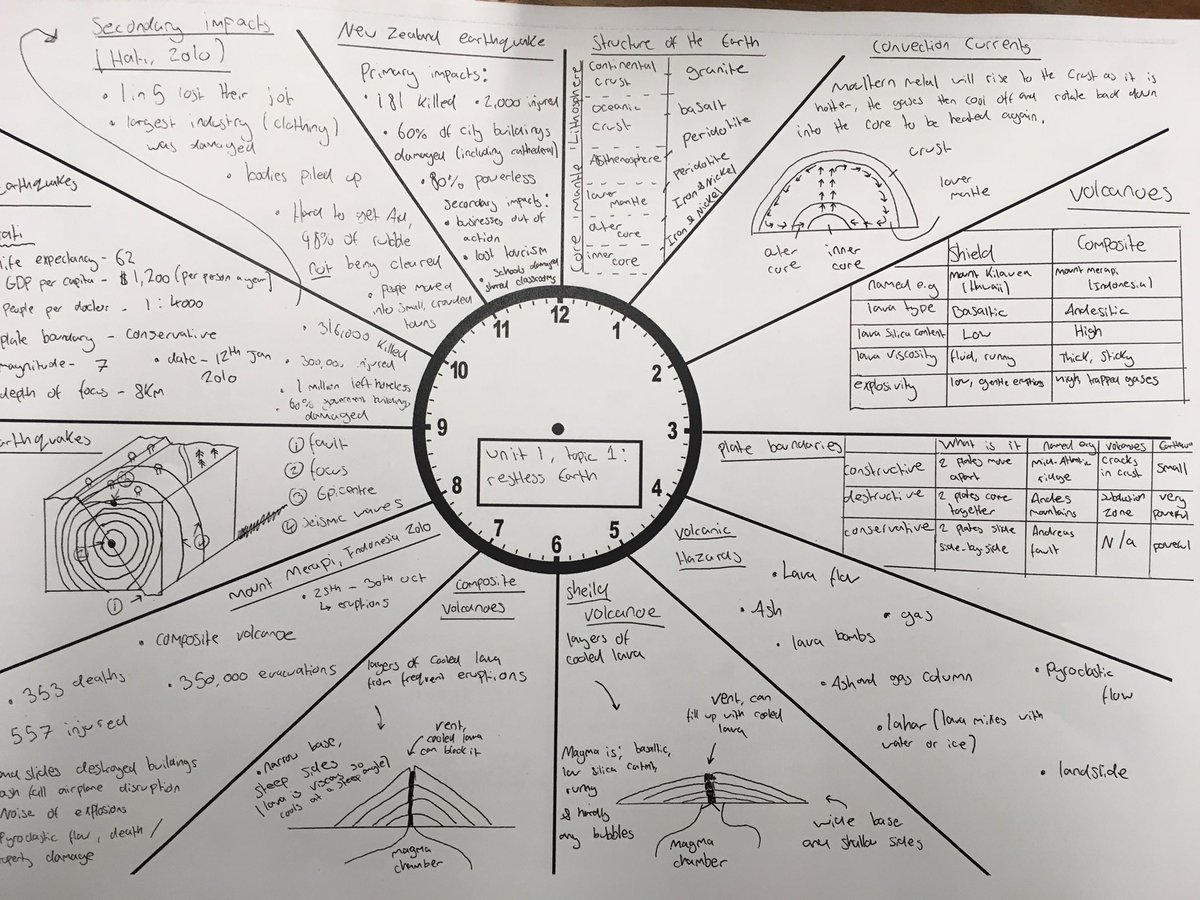 Secondary impacts
(Hati, 2010)
• 1 in 5 lost their job
• largest industry (clothing)
was damaged
• bodies piled up
• Hard to get Aid,
98% of rubble
not being cleared
• people moved
into small, crowded
towns
New Zealand earthquake
Primary impacts:
• 181 killed • 2,000 injured
• 60% of city buildings
damaged (including cathederal)
• 80% powerless
secondary impacts:
• businesses out of
action
• lost tourism
• schools damaged
shared classrooms
Structure of the Earth
Lithosphere
mantle
Core
continental
crust
granite
oceanic
crust
basalt
peridotite
Asthenosphere
peridotite
lower
mantle
Iron & Nickel
outer
core
Iron & Nickel
inner
core
Convection Currents
metal will rise to the crust as it is
hotter, the gases then cool off and rotate back down
into the core to be heated again.
crust
lower
mantle
outer
core
inner
core
Volcanoes
Shield Composite
named e.g Mount Kilauea (Hawaii) mount merapi (Indonesia)
lava type Basaltic Andesitic
lava silica content Low High
lava viscosity fluid, runny Thick, sticky
explosivity low, gentle eruptions high trapped gases
plate boundaries
What is it Named e.g volcanoes
constructive 2 plates move apart Mid-Atlantic ridge cracks in crust small
destructive 2 plates come together Andes mountains subduction zone very powerful
conservative 2 plates slide side-by-side Andreas fault N/a powerful
volcanic
Hazards
• Lava flow
• Ash
• gas
• lava bombs
• Ash and gas column
• Pyroclastic
flow
• lahar (lava mixes with
water or ice)
• landslide
sheild
volcanoe
layers of
cooled lava
vent, can
fill up with cooled
lava
Magma is; basaltic,
low silica content,
runny
& hardly
any bubbles
magma
chamber
wide base
and shallow sides
Composite
volcanoes
layers of cooled lava
from frequent eruptions
vent,
cooled lava
can block it
• narrow base,
steep sides so
lava is viscous
cools at a steep angle)
magma
chamber
Mount Merapi, Indonesia 2010
• 25th - 30th Oct
↳ eruptions
• composite volcanoe
• 353 deaths
• 350,000 evacuations
557 injured
slides destroyed buildings
ash fall airplane disruption
Noise of explosions
Pyroclastic flow, death /
damage
arthquakes
① fault
② focus
③ Epicentre
④ seismic waves
①
earthquakes
life expectancy - 62
GDP per capita - $1,200 (per person a year)
people per doctor - 1:4000
plate boundary - conservative
magnitude - 7
• date - 12th Jan
2010
depth of focus - 8km
• 316,000 killed
• 300,000 injured
• 1 million left homeless
• 60% government buildings
damaged
12
1
2
3
4
5
6
7
8
9
10
11
unit 1, topic 1:
restless Earth